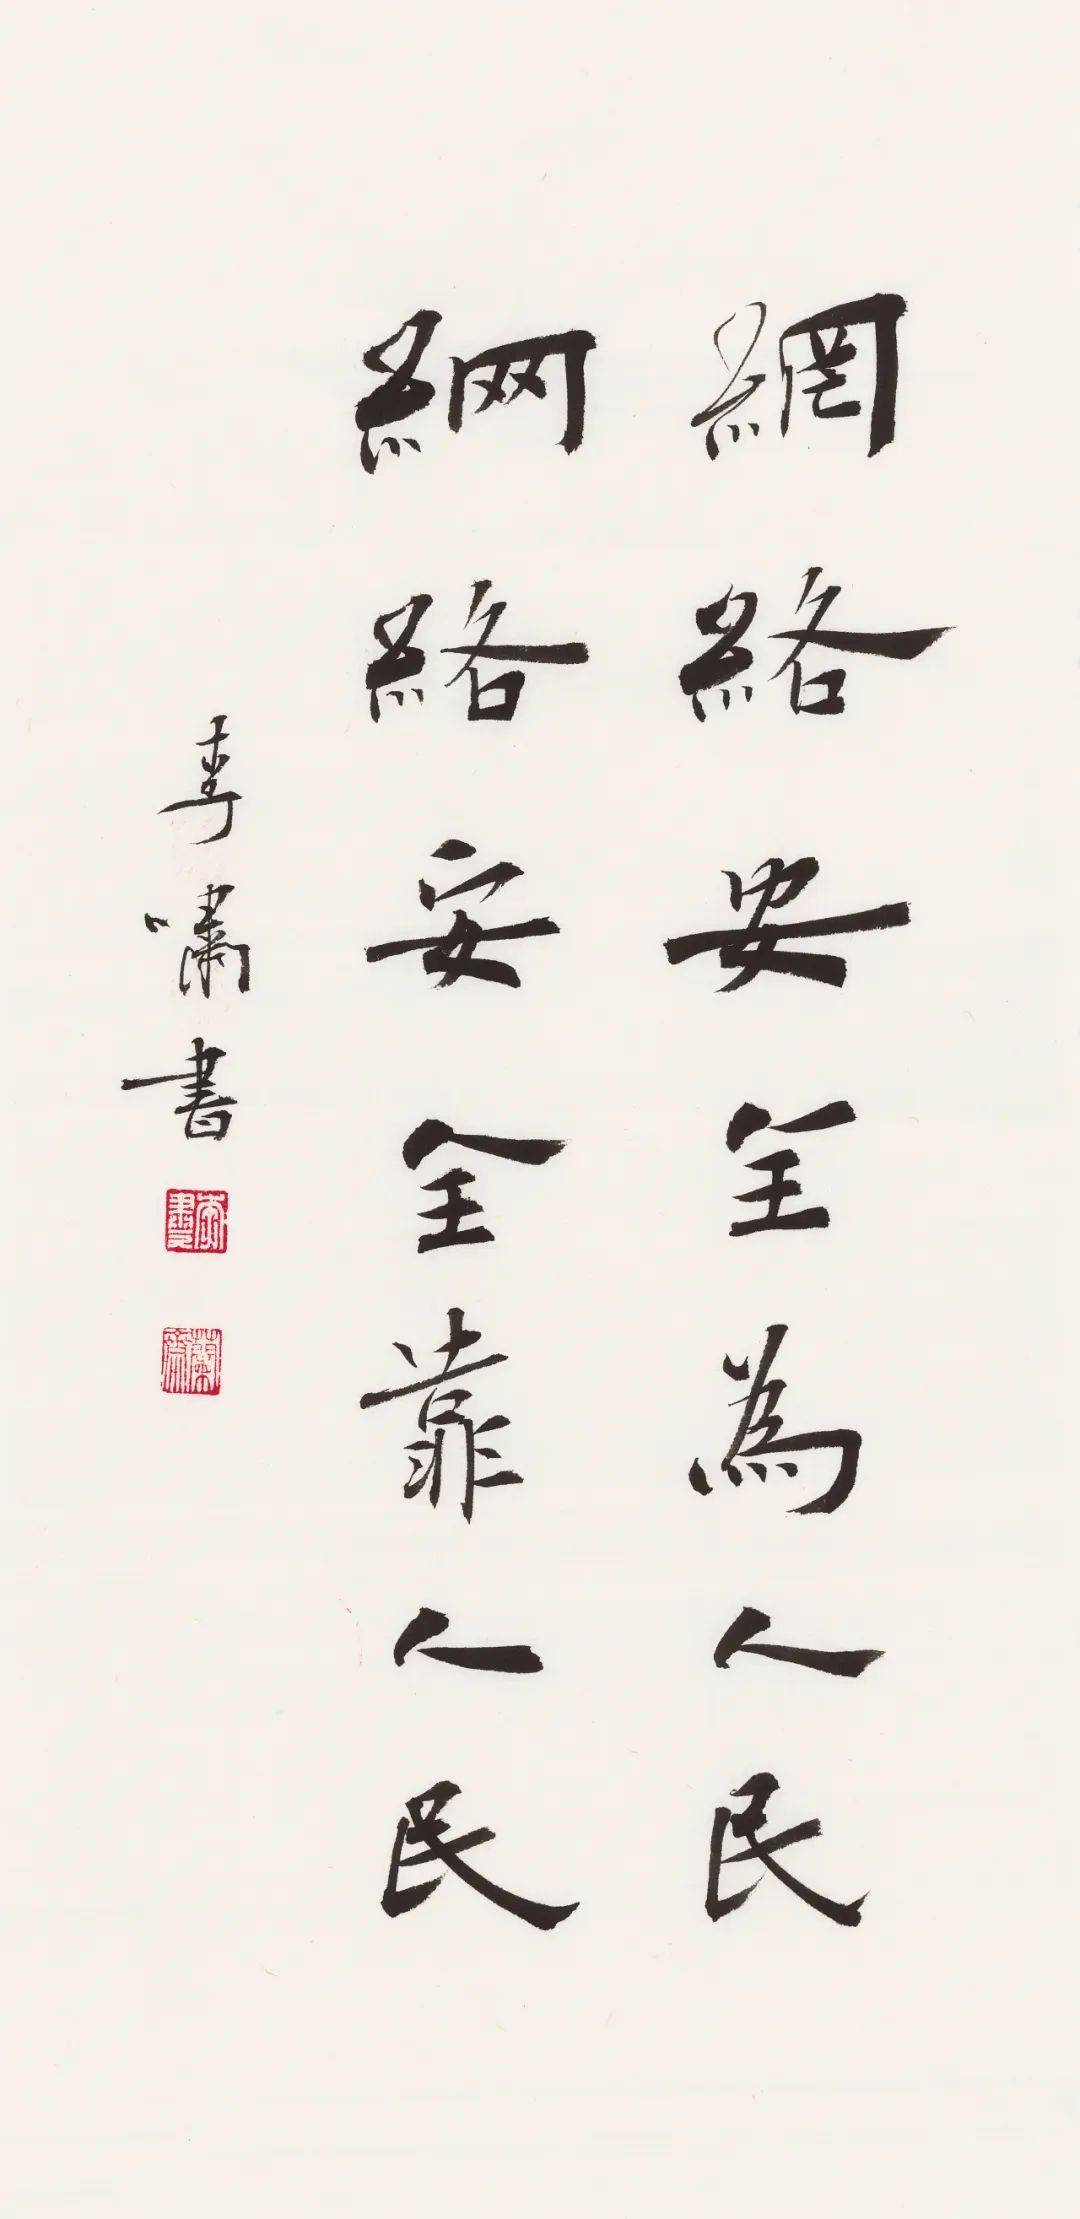 網絡安全為人民
網絡安全靠人民
李嘯書